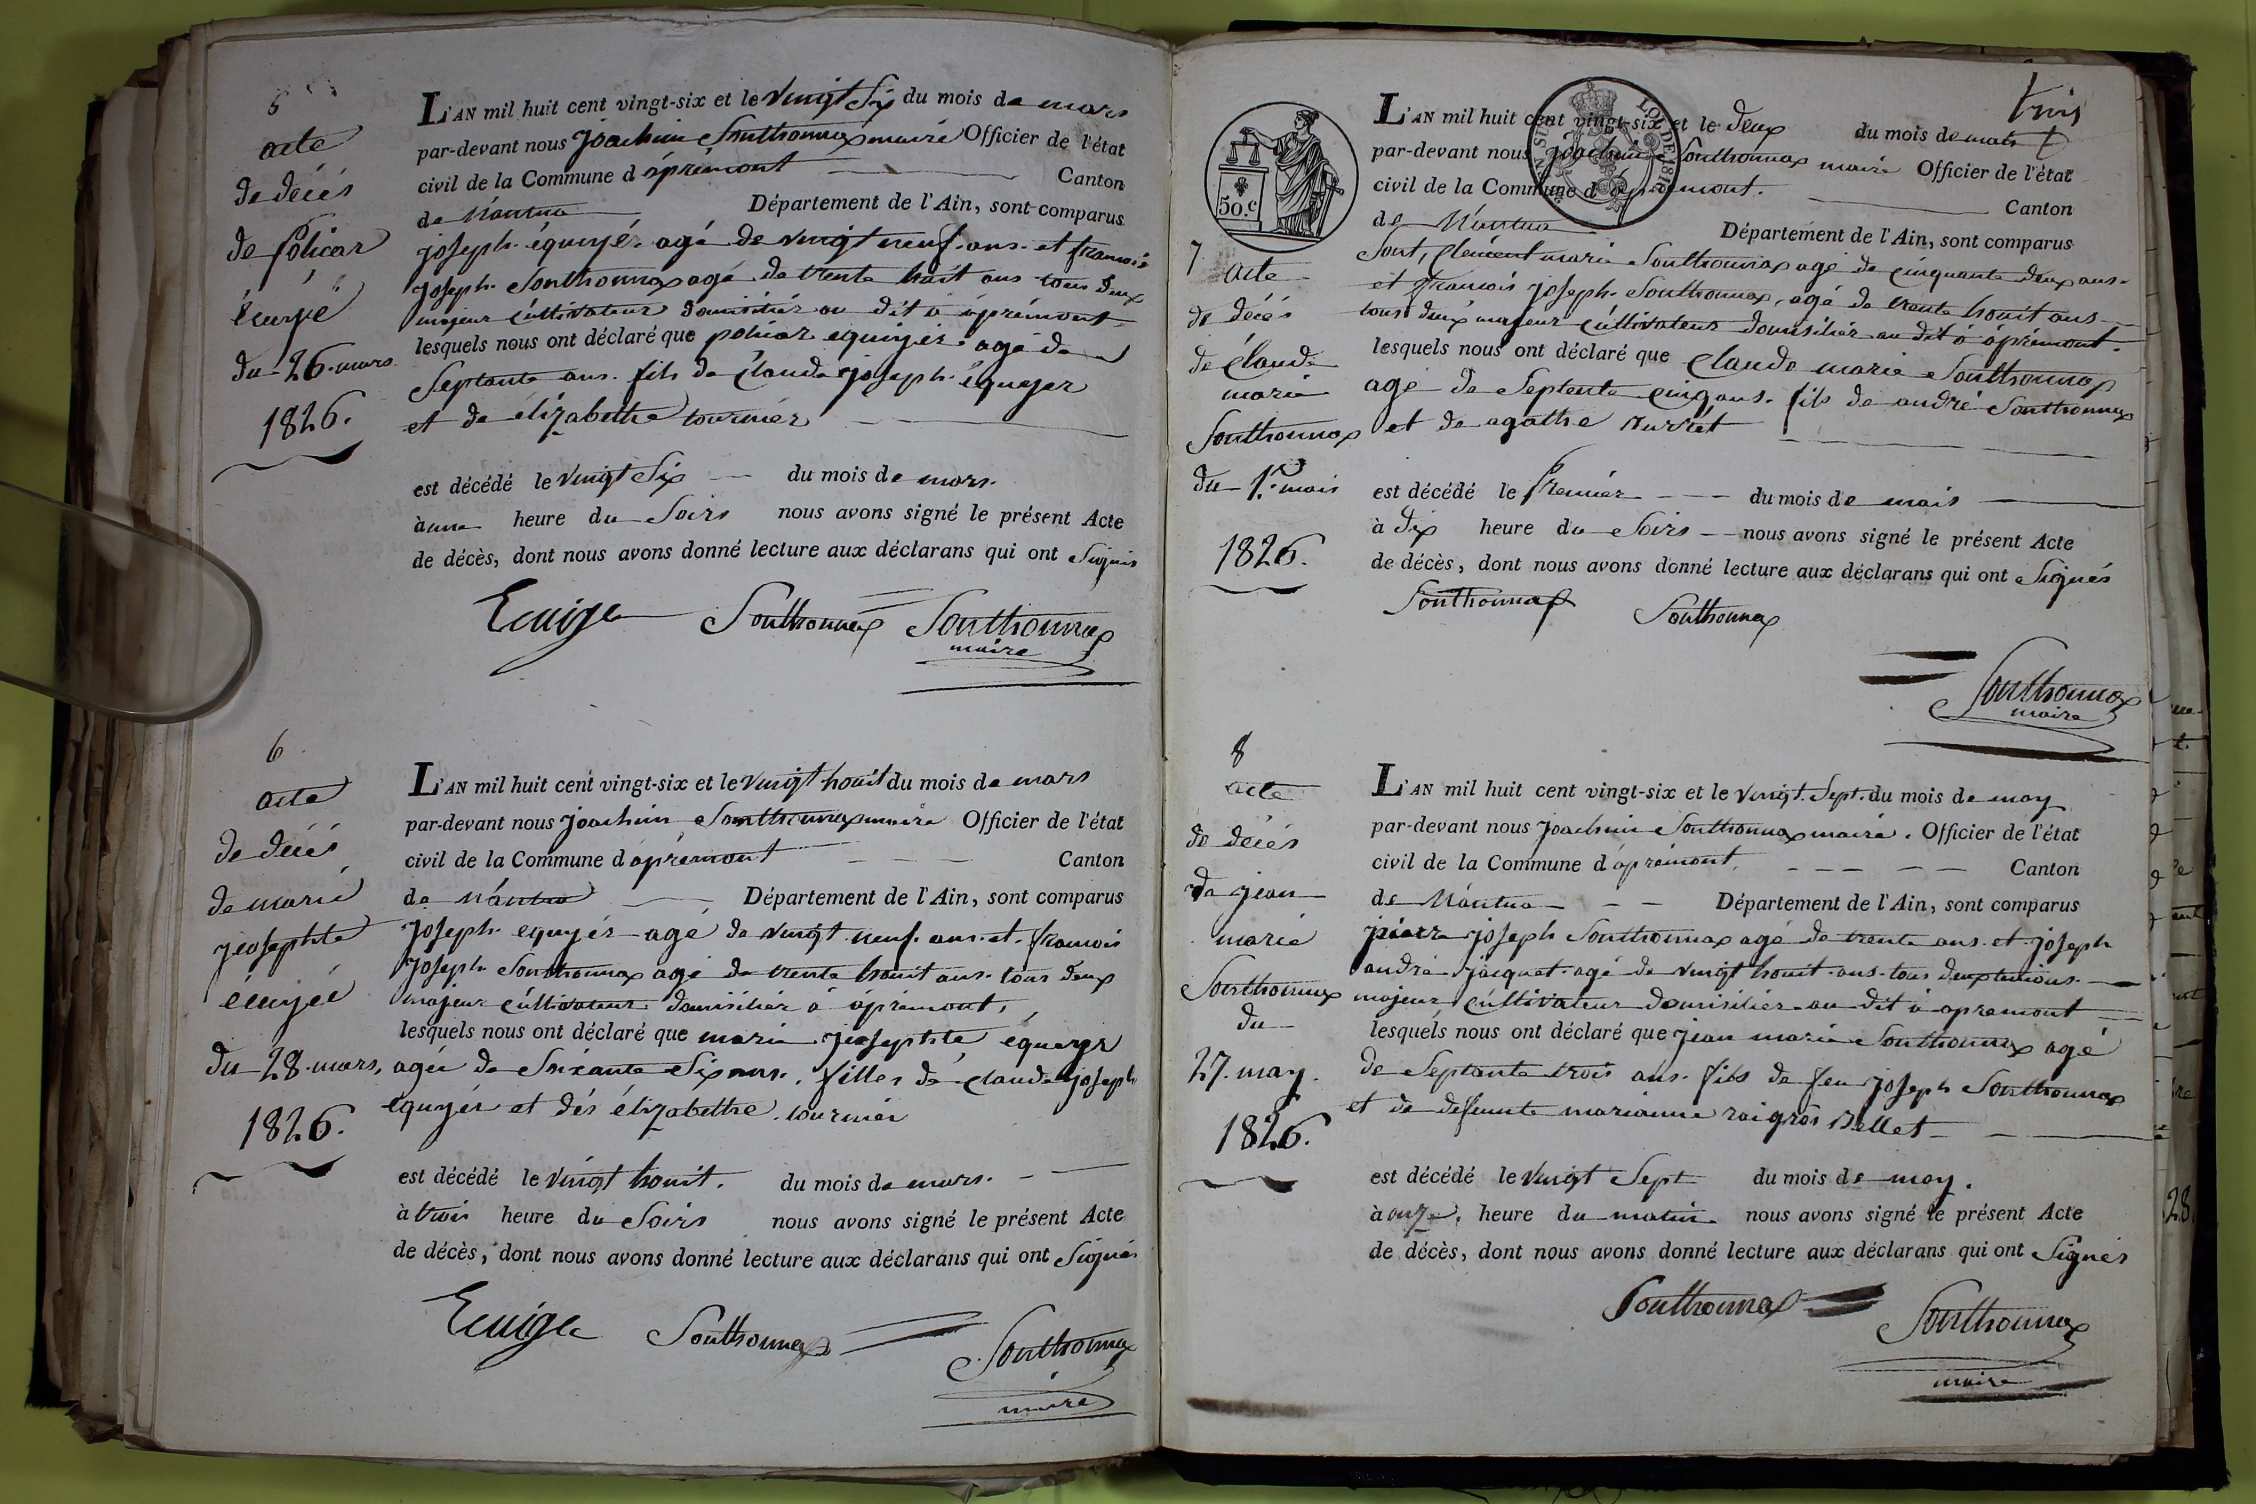 5
acte
de décés
de policar
écuyé
du 26. mars
1826.
L'AN mil huit cent vingt-six et le vingt six du mois de mars
par-devant nous joachim Sonthonnax maire Officier de l'état
civil de la Commune d'aprémont Canton
de Nántua Département de l'Ain, sont comparus
joseph équyé agé de vingt neuf ans et francois
joseph Sonthonnax agé de trente huit ans tous deux
majeur cúltivateur domisiliér au dit à áprémont
lesquels nous ont déclaré que policar equyér agé de
Septante ans. fils de claude joseph équyer
et de élizabethe tournier
est décédé le vingt Six du mois de mars.
à une heure du Soirs nous avons signé le présent Acte
de décès, dont nous avons donné lecture aux déclarans qui ont Signés
Ecuiye Sonthonnax Sonthonnax
maire
6
acte
de décés
de marie
jeosephte
écuyée
du 28. mars,
1826.
L'AN mil huit cent vingt-six et le vingt houit du mois de mars
par-devant nous joachim Sonthonnax maire Officier de l'état
civil de la Commune d'áprémont Canton
de nántua Département de l'Ain, sont comparus
joseph equyér agé de vingt neuf ans et francois
joseph Sonthonnax agé de trente houit ans tous deux
majeur cúltivateur domisiliér à áprémont,
lesquels nous ont déclaré que marie jeosephte équeyr
agée de Soixante Six ans. filles de claude joseph
equyér et dés élizabethe tourniér
est décédé le vingt houit. du mois de mars.
à trois heure du Soirs nous avons signé le présent Acte
de décès, dont nous avons donné lecture aux déclarans qui ont Signés
Ecuiye Sonthonnax Sonthonnax
maire
trois
50.c
LOI DE 181
7
acte
de décés
de claude
marie
Sonthonnax
du 1.er mais
1826.
L'AN mil huit cent vingt-six et le deux du mois de mais
par-devant nous joachim Sonthonnax maire Officier de l'état
civil de la Commune d'áprémont. Canton
de Nántua Département de l'Ain, sont comparus
Sont, clément marie Sonthonnax agé de cinquante deux ans.
et francois joseph Sonthonnax, agé de trente houit ans
tous deux majeur cúltivateur domisiliér au dit à áprémont.
lesquels nous ont déclaré que claude marie Sonthonnax
agé de Septente cinq ans. fils de andré Sonthonnax
et de agathe
est décédé le Premiér du mois de mais
à dix heure du Soirs nous avons signé le présent Acte
de décès, dont nous avons donné lecture aux déclarans qui ont Signés
Sonthonnax Sonthonnax
Sonthonnax
maire
8
acte
de décés
de jean
marie
Sonthonnax
du
27. may.
1826.
L'AN mil huit cent vingt-six et le vingt. Sept. du mois de may
par-devant nous joachim Sonthonnax maire. Officier de l'état
civil de la Commune d'áprémont Canton
de Nántua Département de l'Ain, sont comparus
pierre joseph Sonthonnax agé de trente ans et joseph
andré jacquet agé de vingt houit ans tous deux
majeur cúltivateur domisiliér au dit à apremont
lesquels nous ont déclaré que jean marie Sonthonnax agé
de Septante trois ans. fils de feu joseph Sonthonnax
et de défeunte marianne
est décédé le vingt Sept du mois de may.
à onze. heure du matin nous avons signé le présent Acte
de décès, dont nous avons donné lecture aux déclarans qui ont Signés
Sonthonnax Sonthonnax
maire
28